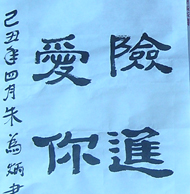 險進
愛你
己丑年四月朱為炳書